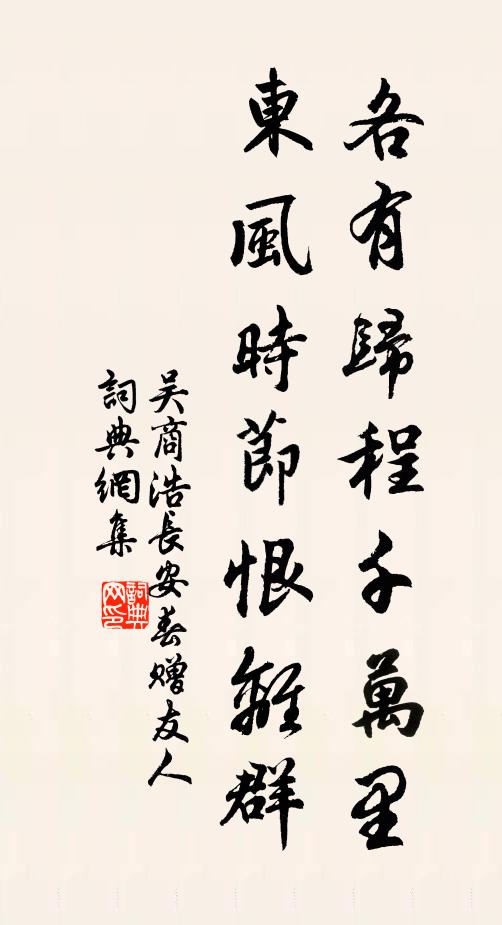 各有歸程千萬里
東風時節恨離群
吴商浩長安春赠友人
詞典網集
詞典网印